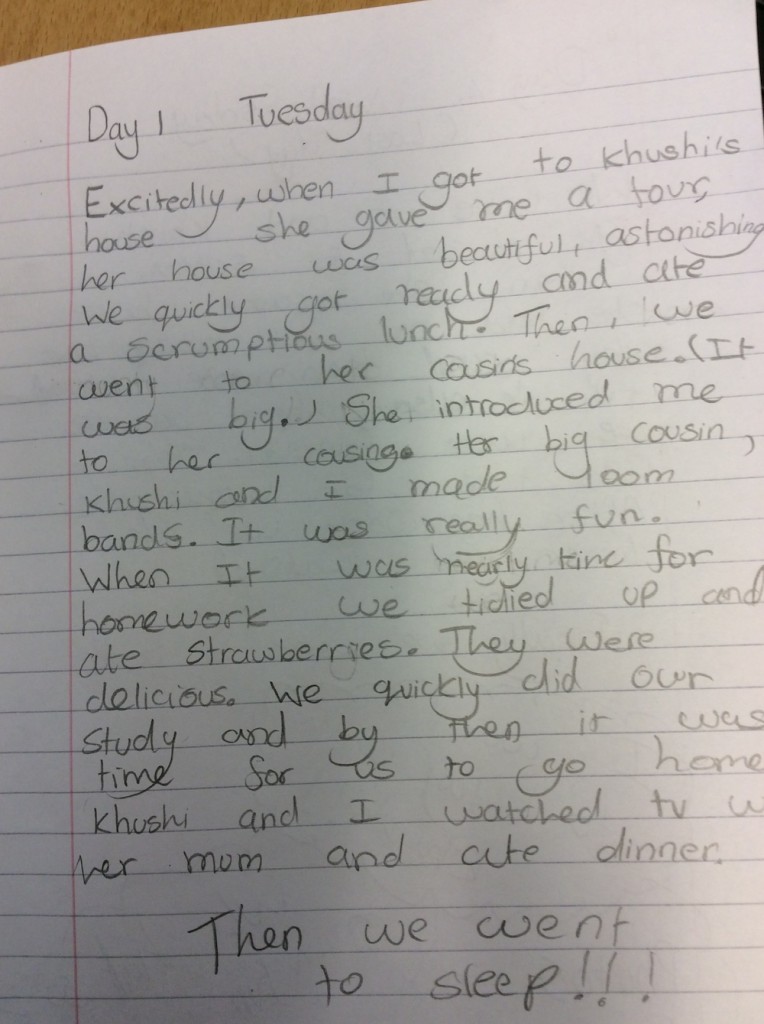 Day 1 Tuesday
Excitedly, when I got to Khushi's
house she gave me a tour,
her house was beautiful, astonishing
We quickly got ready and ate
a scrumptious lunch. Then, we
went to her cousin's house. (It
was big.) She introduced me
to her cousing. Her big cousin,
Khushi and I made loom
bands. It was really fun.
When It was nearly time for
homework we tidied up and
ate strawberries. They were
delicious. We quickly did our
study and by then it was
time for us to go home
Khushi and I watched tv w
her mum and ate dinner.
Then we went
to sleep!!!